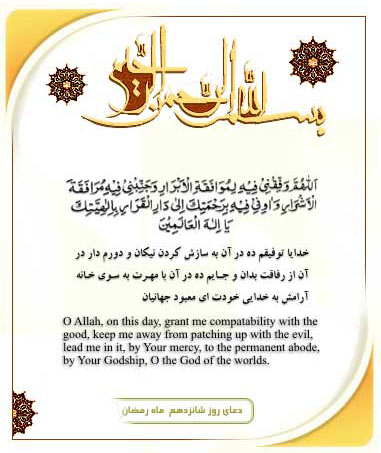 بسم الله الرحمن الرحیم
اَللّهُمَّ وَفِّقْنی فیهِ لِمُوافَقَةِ الْاَبْرارِ وَجَنِّبْنی فیهِ مُرافَقَةَ
الْاَشْرارِ وَاوِنی فیهِ بِرَحْمَتِكَ اِلی دارِ الْقَرارِ بِاِلهِیَّتِكَ
یا اِلهَ الْعالَمینَ
خدایا توفیقم ده در آن به سازش کردن نیکان و دورم دار در
آن از رفاقت بدان و جایم ده در آن با مهرت به سوی خانه
آرامش به خدایی خودت ای معبود جهانیان
O Allah, on this day, grant me compatability with the
good, keep me away from patching up with the evil,
lead me in it, by Your mercy, to the permanent abode,
by Your Godship, O the God of the worlds.
دعای روز شانزدهم ماه رمضان